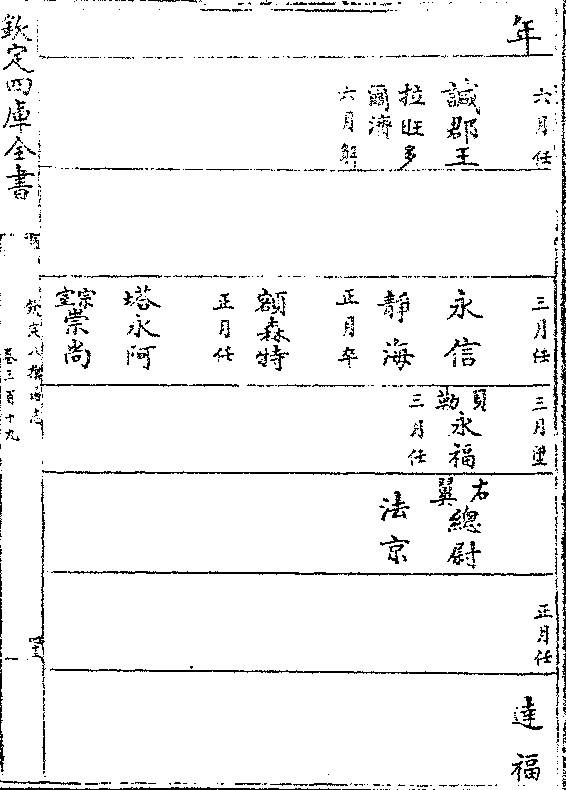 年
六月任
諴郡王
拉旺多
爾濟
六月解
三月任
永信
靜海
正月卒
額森特
正月任
塔永阿
宗室崇尚
三月陞
貝勒永福
三月任
右翼總尉
法京
正月任
達福
欽定四庫全書
欽定八旗通志
卷三百十九